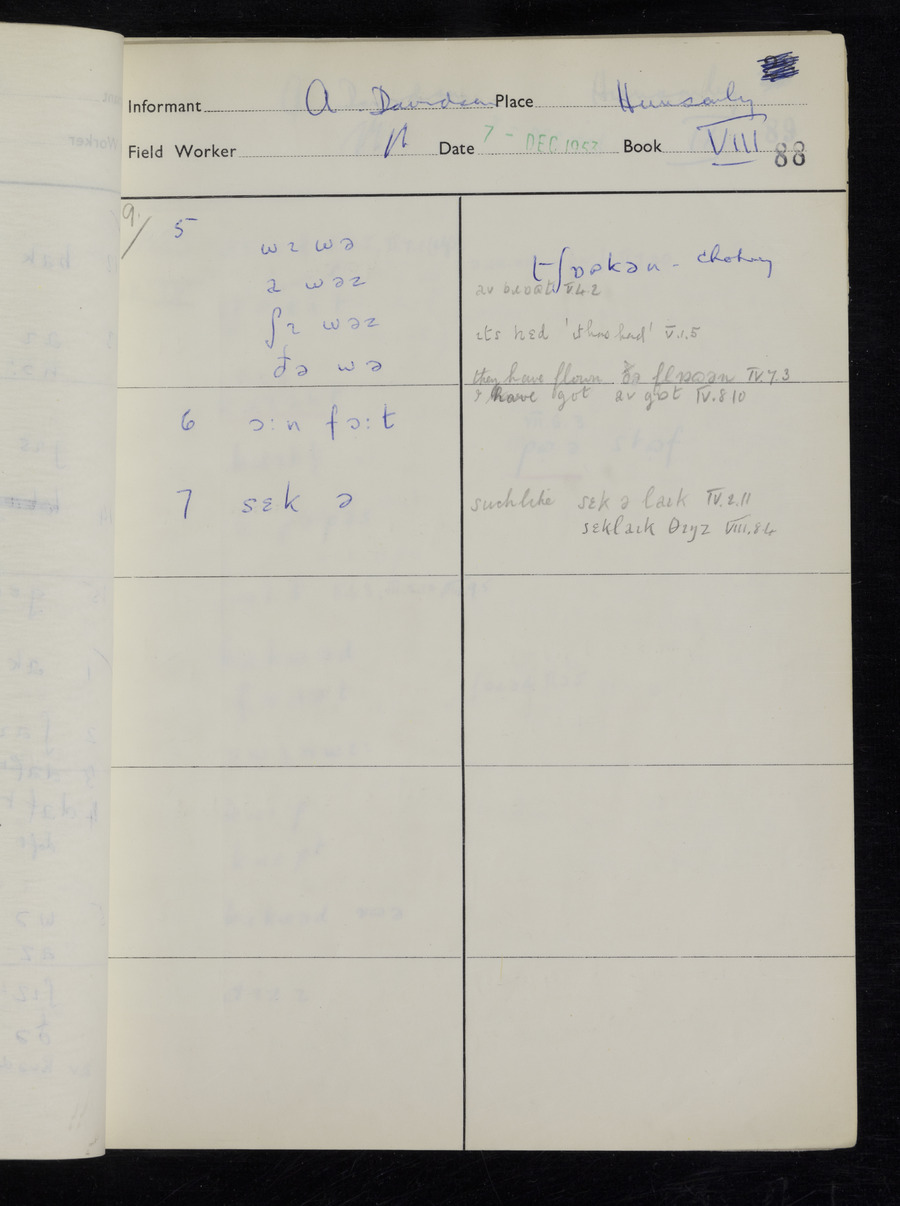 Informant A Davidson Place Hunsonby
Field Worker Date 7 - DEC 1953 Book VIII 88
9/ 5
wɪ wə
tʃɒəkən - choking
a wəz
av bɪɒət V.4.2
ʃɪ wəz
its hɛd 'it has had' V.1.5
ðə wə
they have flown IV.7.3
I have got av gɒt IV.8.10
6 ɔ:n fɔ:t
7 sɛk ə
suchlike sɛk ə laɪk IV.2.11
sɛklaɪk θɪŋz VIII.8.4